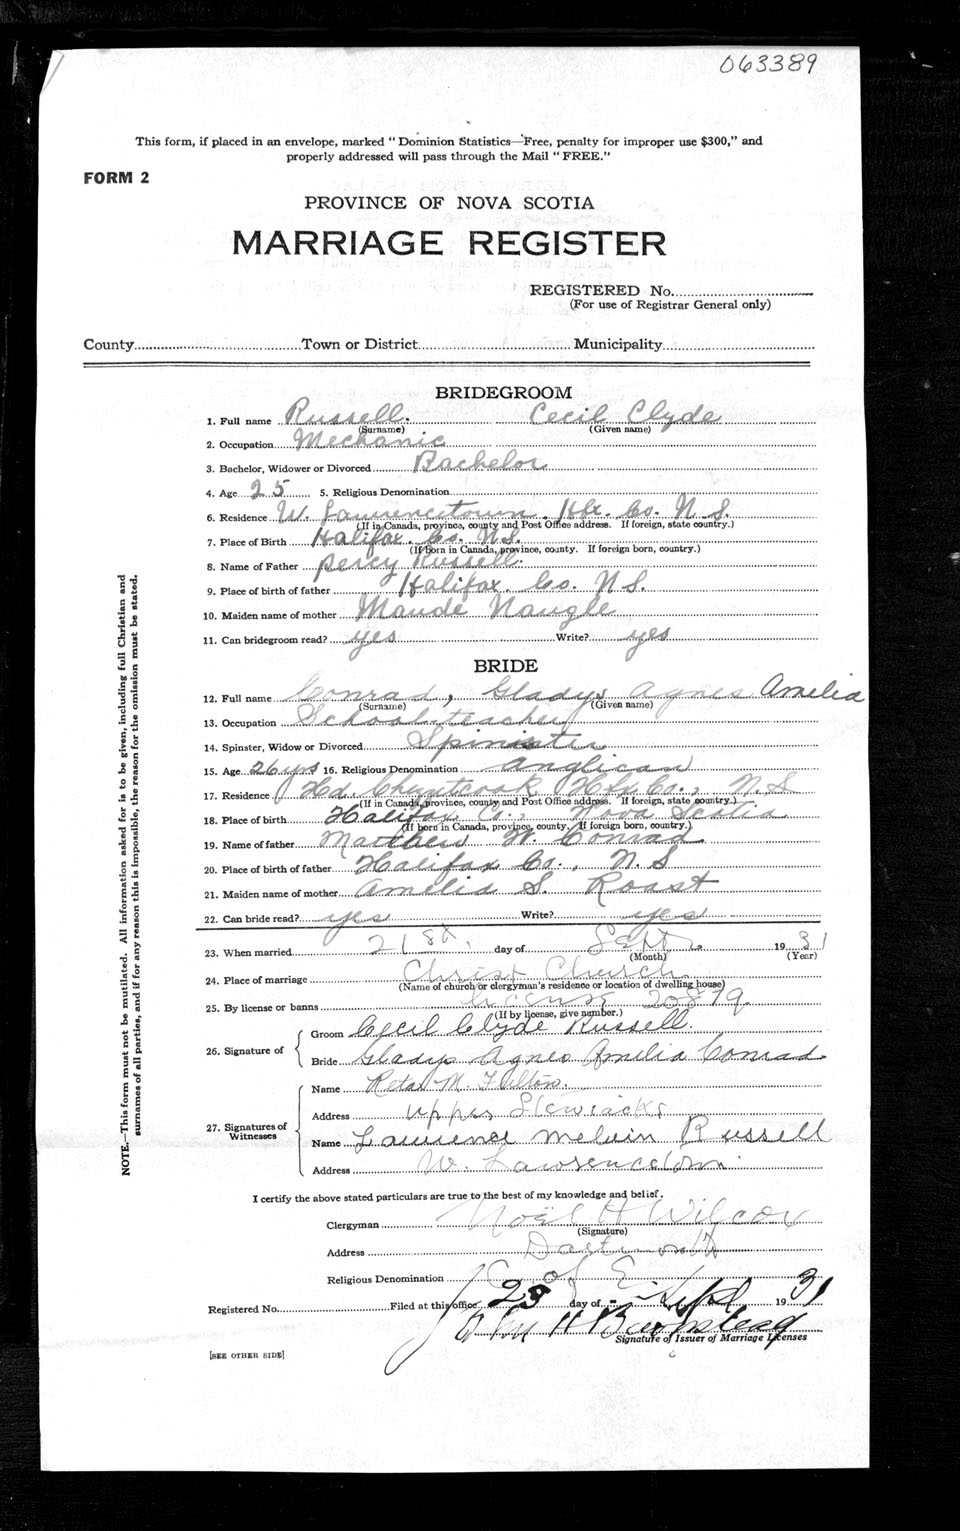 063389
This form, if placed in an envelope, marked "Dominion Statistics—Free, penalty for improper use $300," and
properly addressed will pass through the Mail "FREE."
FORM 2
PROVINCE OF NOVA SCOTIA
MARRIAGE REGISTER
REGISTERED No.
(For use of Registrar General only)
County Town or District Municipality
BRIDEGROOM
1. Full name Russell. Cecil Clyde
(Surname) (Given name)
2. Occupation Mechanic
3. Bachelor, Widower or Divorced Bachelor
4. Age 25 5. Religious Denomination
6. Residence W. Lawrencetown. Hfx. Co. N.S.
(If in Canada, province, county and Post Office address. If foreign, state country.)
7. Place of Birth Halifax. Co. N.S.
(If born in Canada, province, county. If foreign born, country.)
8. Name of Father Percy Russell.
9. Place of birth of father Halifax. Co. N.S.
10. Maiden name of mother Maude Naugle
11. Can bridegroom read? yes Write? yes
BRIDE
12. Full name Conrad, Gladys Agnes Amelia
(Surname) (Given name)
13. Occupation School teacher
14. Spinster, Widow or Divorced Spinster
15. Age 26 yrs 16. Religious Denomination Anglican
17. Residence Hd. Chezetcook, Hfx Co., N.S
(If in Canada, province, county and Post Office address. If foreign, state country.)
18. Place of birth Halifax Co., Nova Scotia
(If born in Canada, province, county. If foreign born, country.)
19. Name of father Matthew W. Conrad
20. Place of birth of father Halifax Co., N.S
21. Maiden name of mother Amelia S. Roast
22. Can bride read? yes Write? yes
23. When married 21st. day of Sept. 1931
(Month) (Year)
24. Place of marriage Christ Church
(Name of church or clergyman's residence or location of dwelling house)
25. By license or banns License 20879
(If by license, give number.)
26. Signature of
Groom Cecil Clyde Russell.
Bride Gladys Agnes Amelia Conrad
27. Signatures of Witnesses
Name Reta M. Fulton.
Address Upper Stewiacke
Name Laurence Melvin Russell
Address W. Lawrencetown.
I certify the above stated particulars are true to the best of my knowledge and belief.
Clergyman Noël H Wilcox
(Signature)
Address Dartmouth
Religious Denomination C of E.
Registered No. Filed at this office 29 day of Sept 1931
John H
Signature of Issuer of Marriage Licenses
[SEE OTHER SIDE]
NOTE.—This form must not be mutilated. All information asked for is to be given, including full Christian and
surnames of all parties, and if for any reason this is impossible, the reason for the omission must be stated.